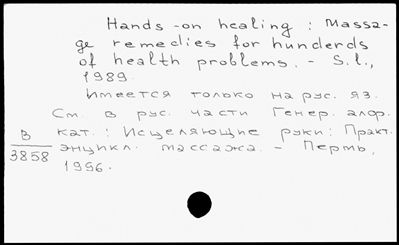 Hands-on healing : Massa-
ge remedies for hunderds
of health problems. - S.l.,
1989.
Имеется только на рус. яз.
См. в рус. части Генер. алф.
В кат.: Исцеляющие руки: Практ.
3858 энцикл. массажа. - Пермь,
1996.